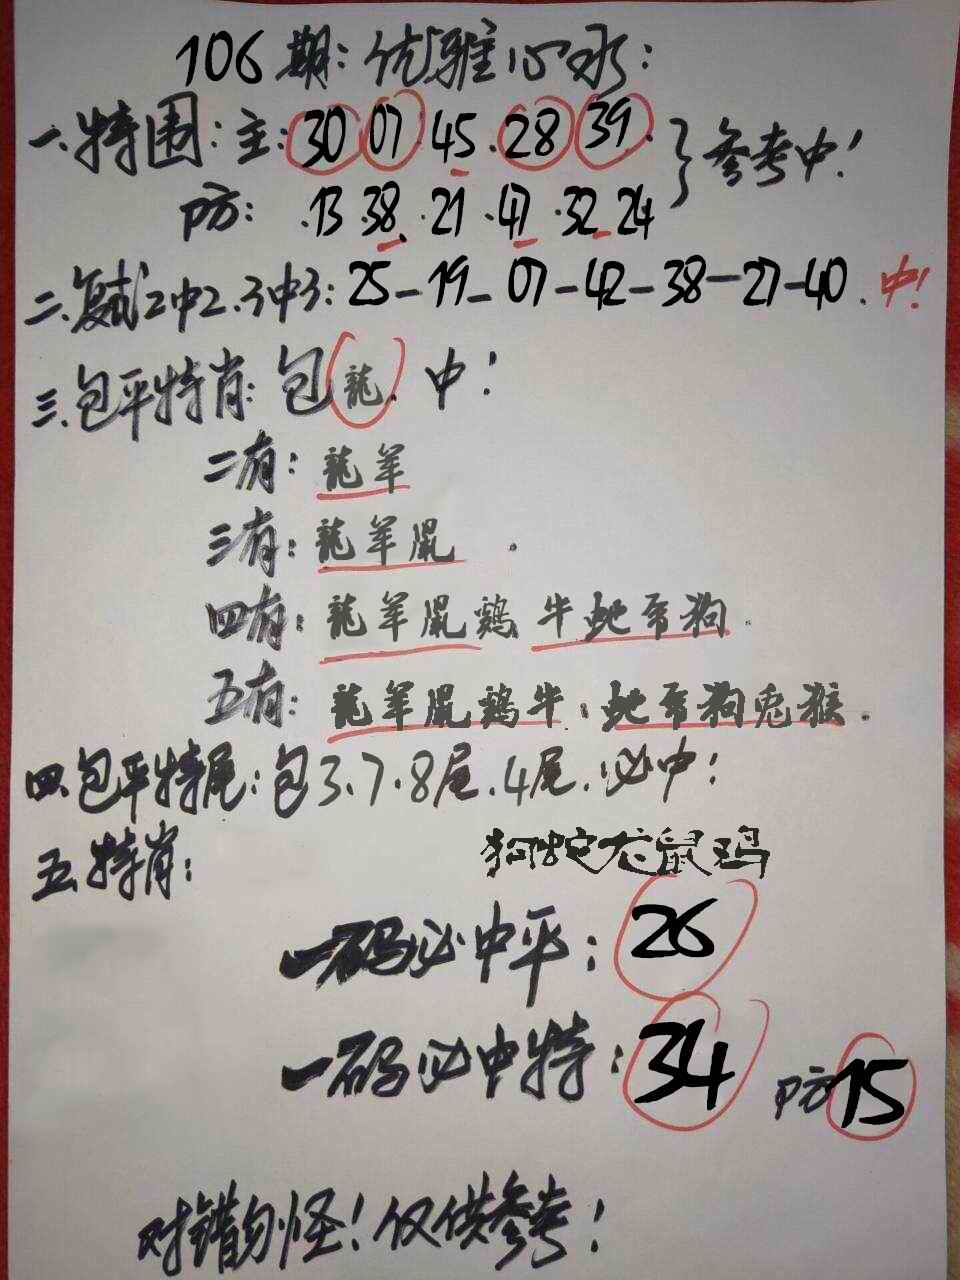 106期:优雅心水:
一.特围:主:30 07 45.28 39. }参考中!
防: .13.38.21.47.32.24
二.复式2中2.3中3:25-19-07-42-38-27-40.中!
三.包平特肖:包龍.中!
二有:龍羊
三有:龍羊鼠.
四有:龍羊鼠鷄 牛蛇 狗.
五有:龍羊鼠鷄牛.蛇 狗兔猴.
四.包平特尾:包3.7.8尾.4尾.必中!
五.特肖: 狗蛇龙鼠鸡
一码必中平:26
一码必中特:34 防15
对错勿怪!仅供参考!